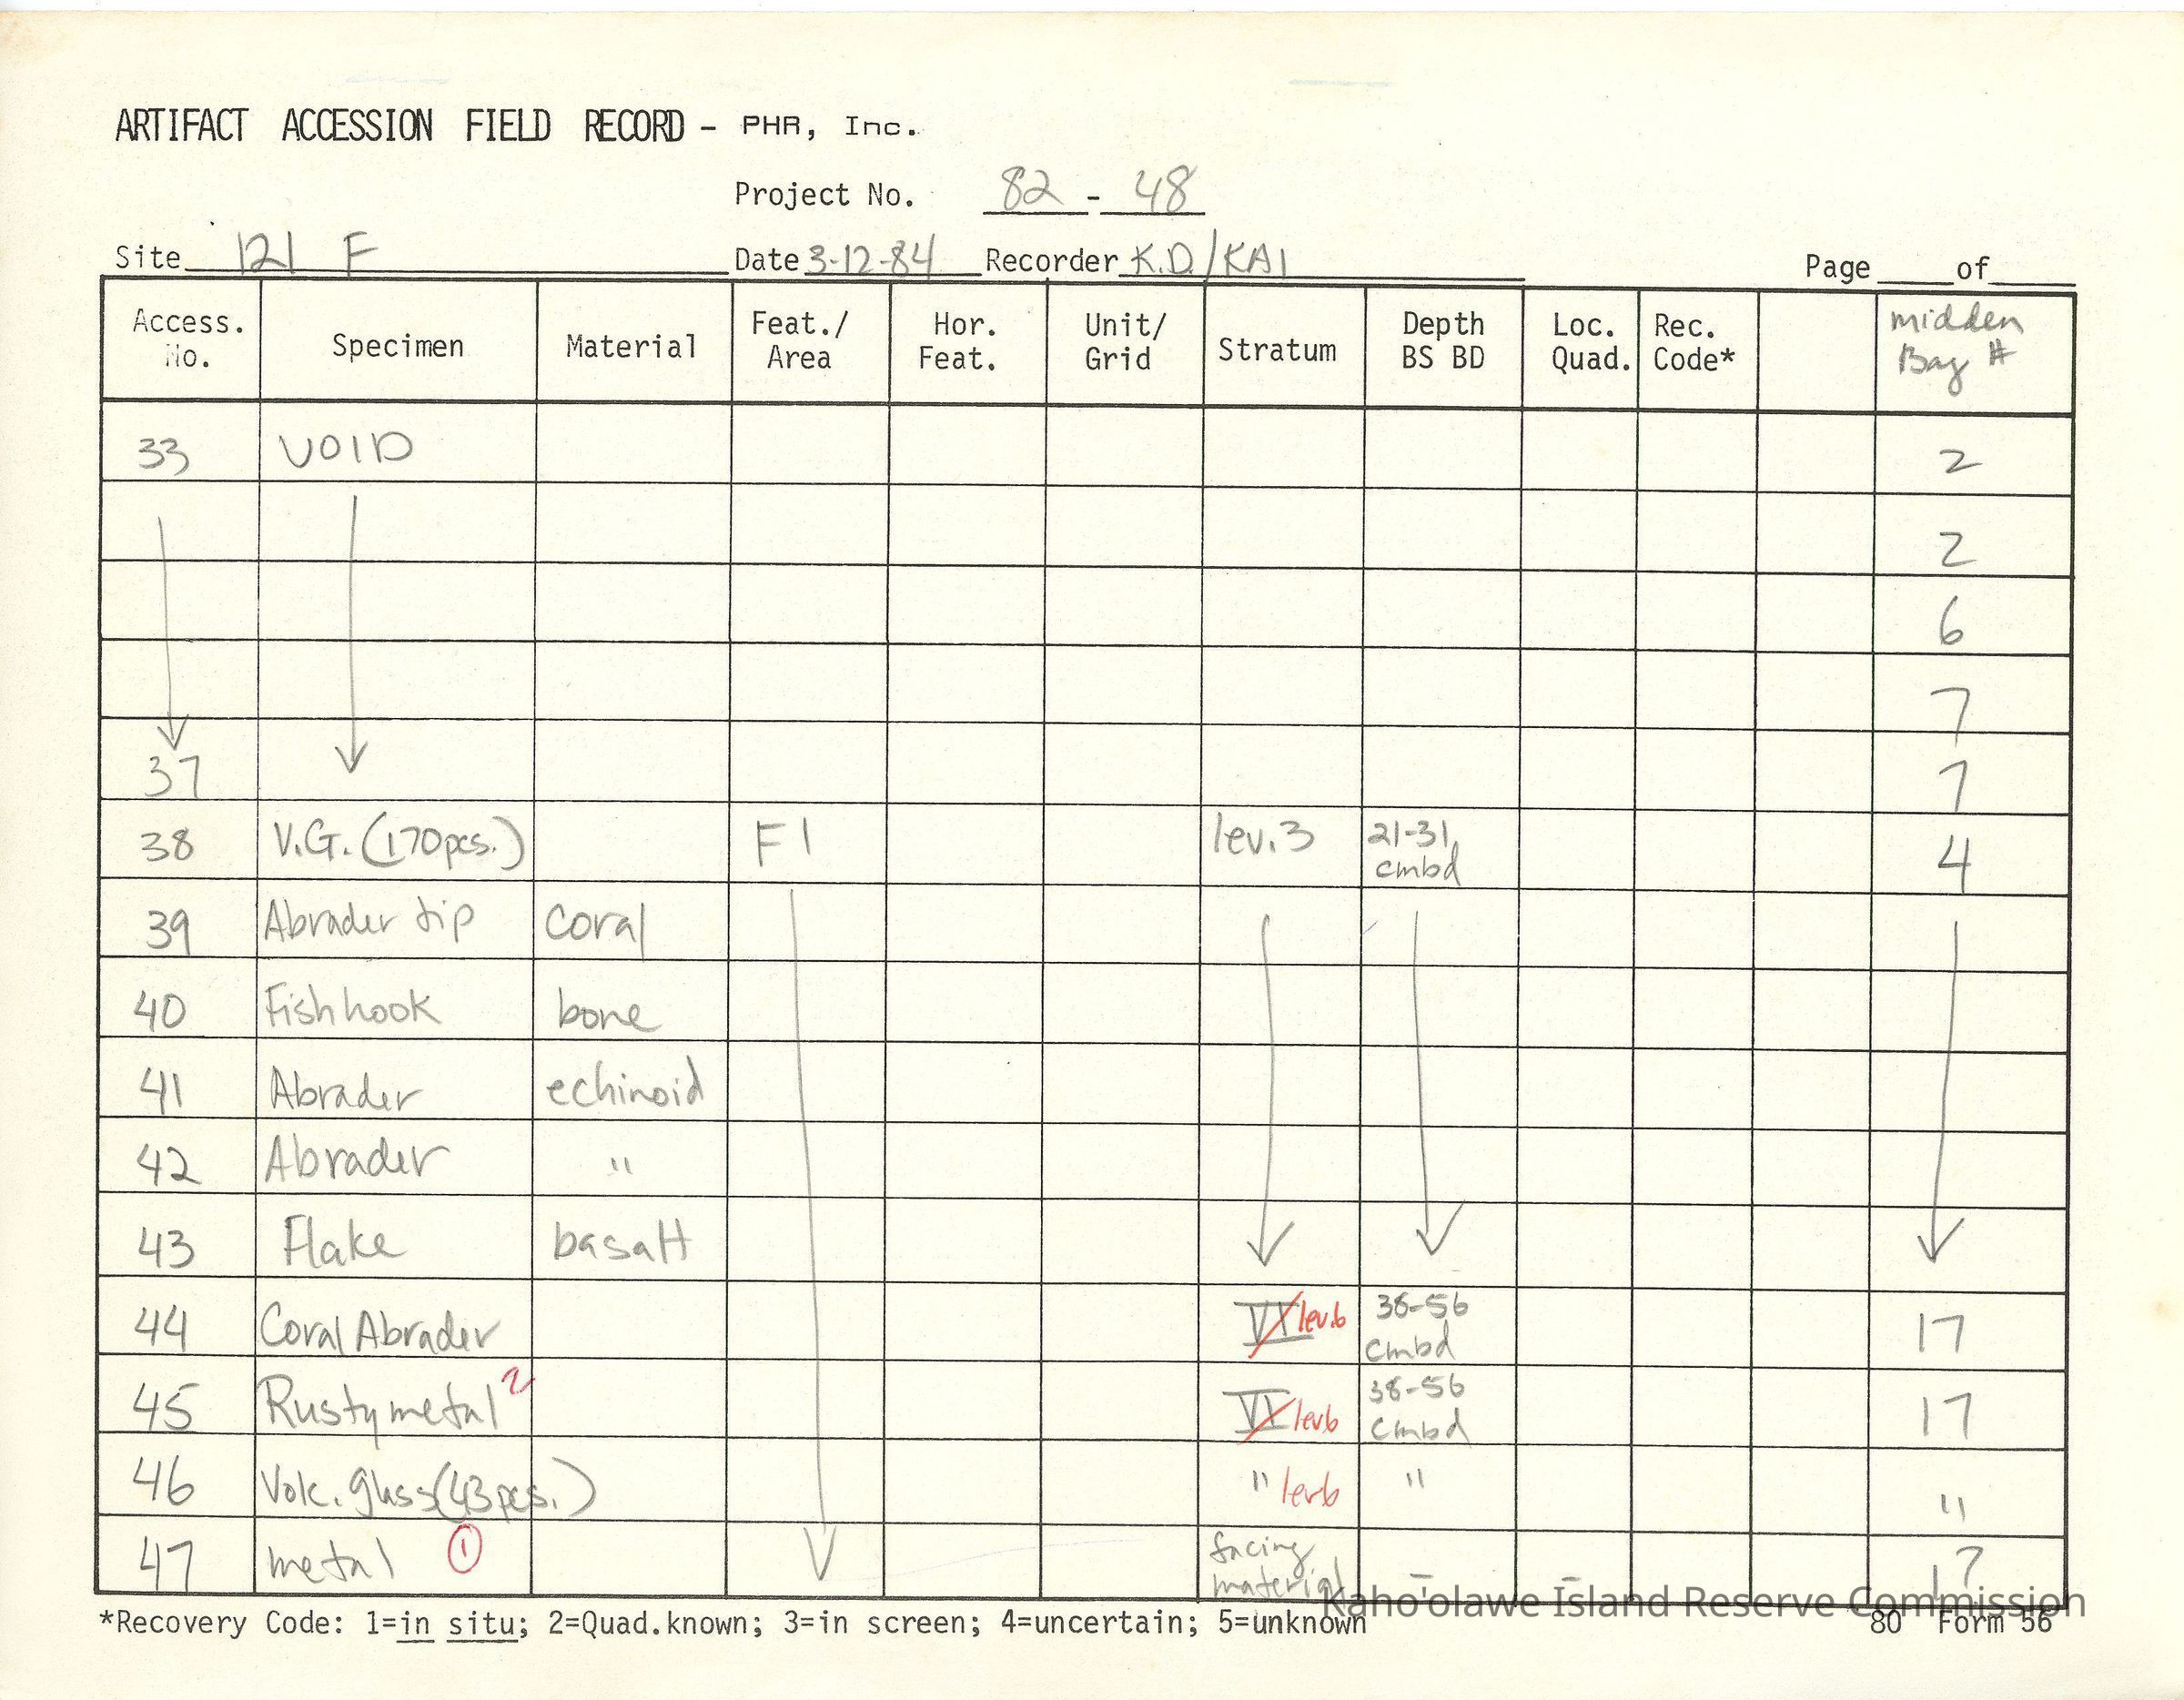 ARTIFACT ACCESSION FIELD RECORD - PHR, Inc.
Project No. 82 - 48
Site 121 F Date 3-12-84 Recorder K.D./KAI Page of
Access. No. Specimen Material Feat./ Area Hor. Feat. Unit/ Grid Stratum Depth BS BD Loc. Quad. Rec. Code* midden Bag #
33 VOID 2
2
6
7
37 7
38 V.G. (170 pcs.) F1 lev.3 21-31 cmbd 4
39 Abrader tip coral
40 Fishhook bone
41 Abrader echinoid
42 Abrader "
43 Flake basalt
44 Coral Abrader VI lev.6 38-56 cmbd 17
45 Rusty metal 2 VI lev6 38-56 cmbd 17
46 Volc. glass (43 pcs.) " lev6 " "
47 metal 1 facing material - - 17
Kaho'olawe Island Reserve Commission
*Recovery Code: 1=in situ; 2=Quad.known; 3=in screen; 4=uncertain; 5=unknown 80 Form 56